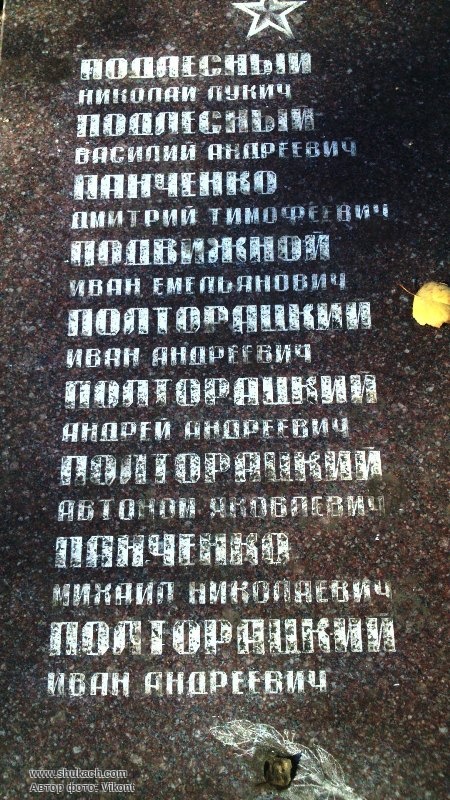 ПОДЛЕСНЫЙ
НИКОЛАЙ ЛУКИЧ
ПОДЛЕСНЫЙ
ВАСИЛИЙ АНДРЕЕВИЧ
ПАНЧЕНКО
ДМИТРИЙ ТИМОФЕЕВИЧ
ПОДВИЖНОЙ
ИВАН ЕМЕЛЬЯНОВИЧ
ПОЛТОРАЦКИЙ
ИВАН АНДРЕЕВИЧ
ПОЛТОРАЦКИЙ
АНДРЕЙ АНДРЕЕВИЧ
ПОЛТОРАЦКИЙ
АВТОНОМ ЯКОВЛЕВИЧ
ПАНЧЕНКО
МИХАИЛ НИКОЛАЕВИЧ
ПОЛТОРАЦКИЙ
ИВАН АНДРЕЕВИЧ
www.shukach.com
Автор фото: Vikont